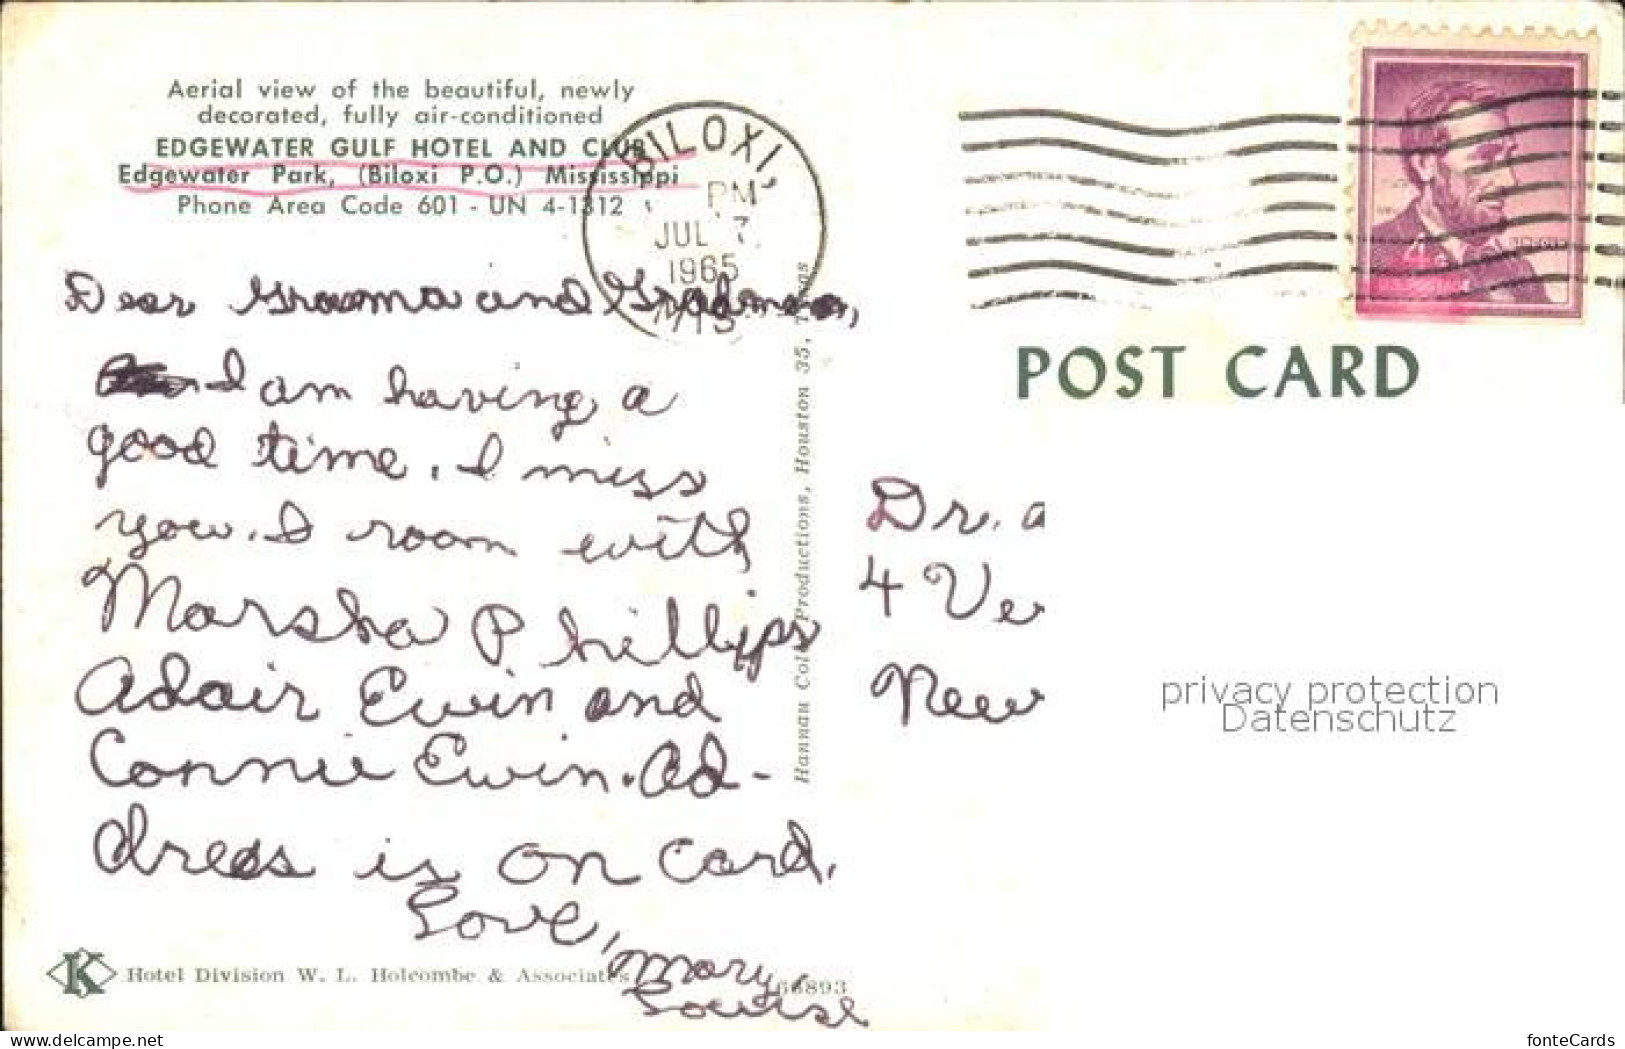 Aerial view of the beautiful, newly
decorated, fully air-conditioned
EDGEWATER GULF HOTEL AND CLUB
Edgewater Park, (Biloxi P.O.) Mississippi
Phone Area Code 601 - UN 4-1312
BILOXI,
PM
JUL 7
1965
MIS
Dear Grasma and Gradmoa,
I am having a
good time. I miss
you. I room with
Marsha Phillips
Adair Ewin and
Connie Ewin. Ad-
dress is on card.
Love,
Mary
Louise
K Hotel Division W. L. Holcombe & Associates
66893
Hannau Color Productions, Houston 35, Texas
POST CARD
Dr. a
4 Ve
New
privacy protection
Datenschutz
www.delcampe.net
fonteCards